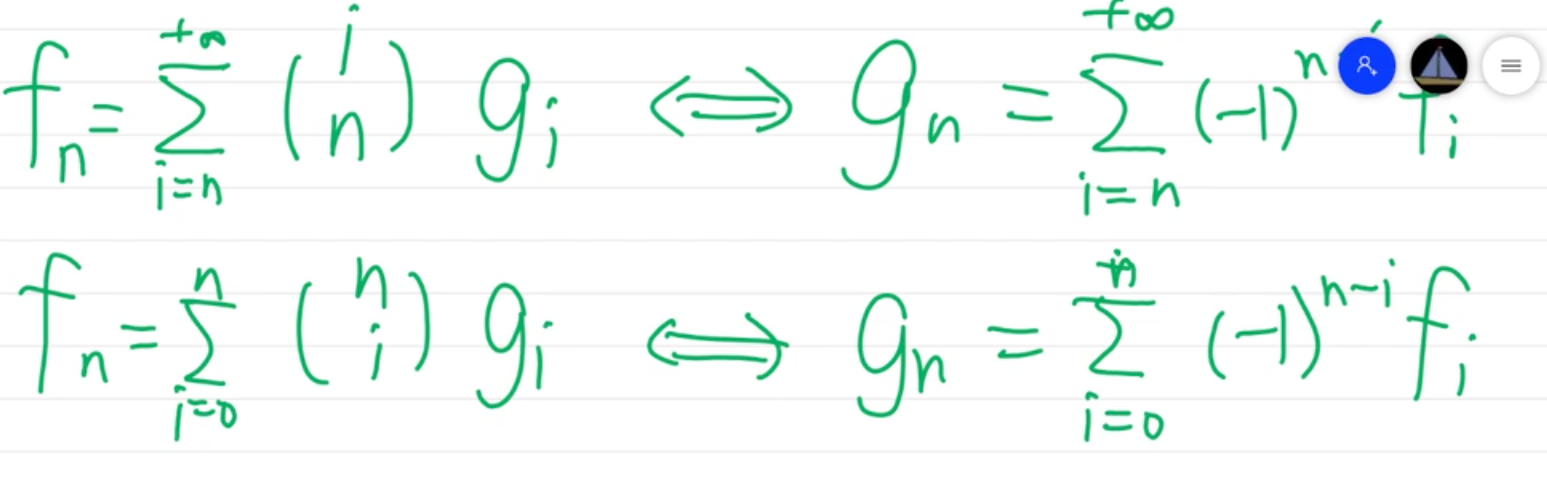 f_n = \sum_{i=n}^{+\infty} \binom{i}{n} g_i \iff g_n = \sum_{i=n}^{+\infty} (-1)^{n} f_i
f_n = \sum_{i=0}^{n} \binom{n}{i} g_i \iff g_n = \sum_{i=0}^{n} (-1)^{n-i} f_i